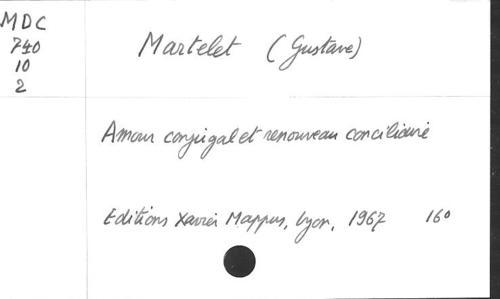 MDC
740
10
2
Martelet (Gustave)
Amour conjugal et renouveau conciliaire
Editions Xavier Mappus, Lyon, 1967 160